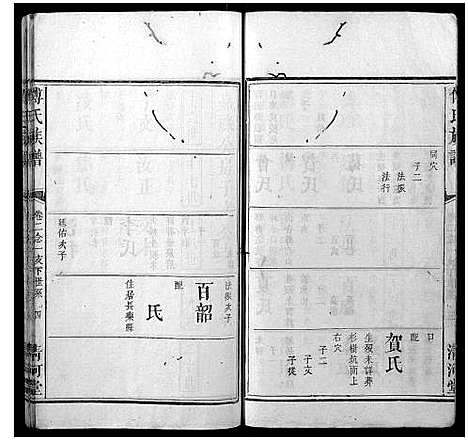 傅氏族譜
同穴
子二
法振
法行
配
賀氏
生歿未詳葬
杉樹坑面上
右穴
子二
子文
子從
清河堂
法振次子
百韶
配
氏
住居長樂縣
廷佑次子
傅氏族譜
卷二
四
清河堂